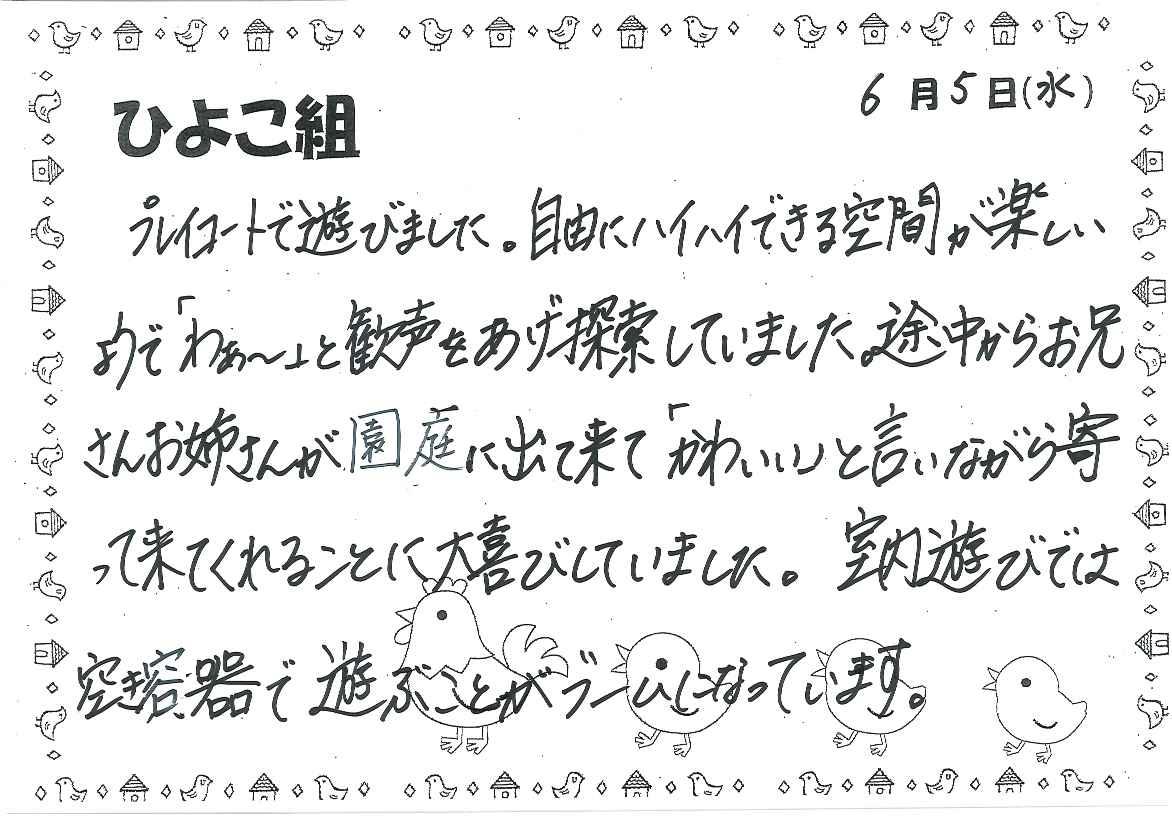 6月5日(水)
ひよこ組
プレイコートで遊びました。自由にハイハイできる空間が楽しい
ようで「わぁ〜」と歓声をあげ探索していました。途中からお兄
さんお姉さんが園庭に出て来て「かわいい」と言いながら寄
って来てくれることに大喜びしていました。室内遊びでは
空き容器で遊ぶことがブームになっています。